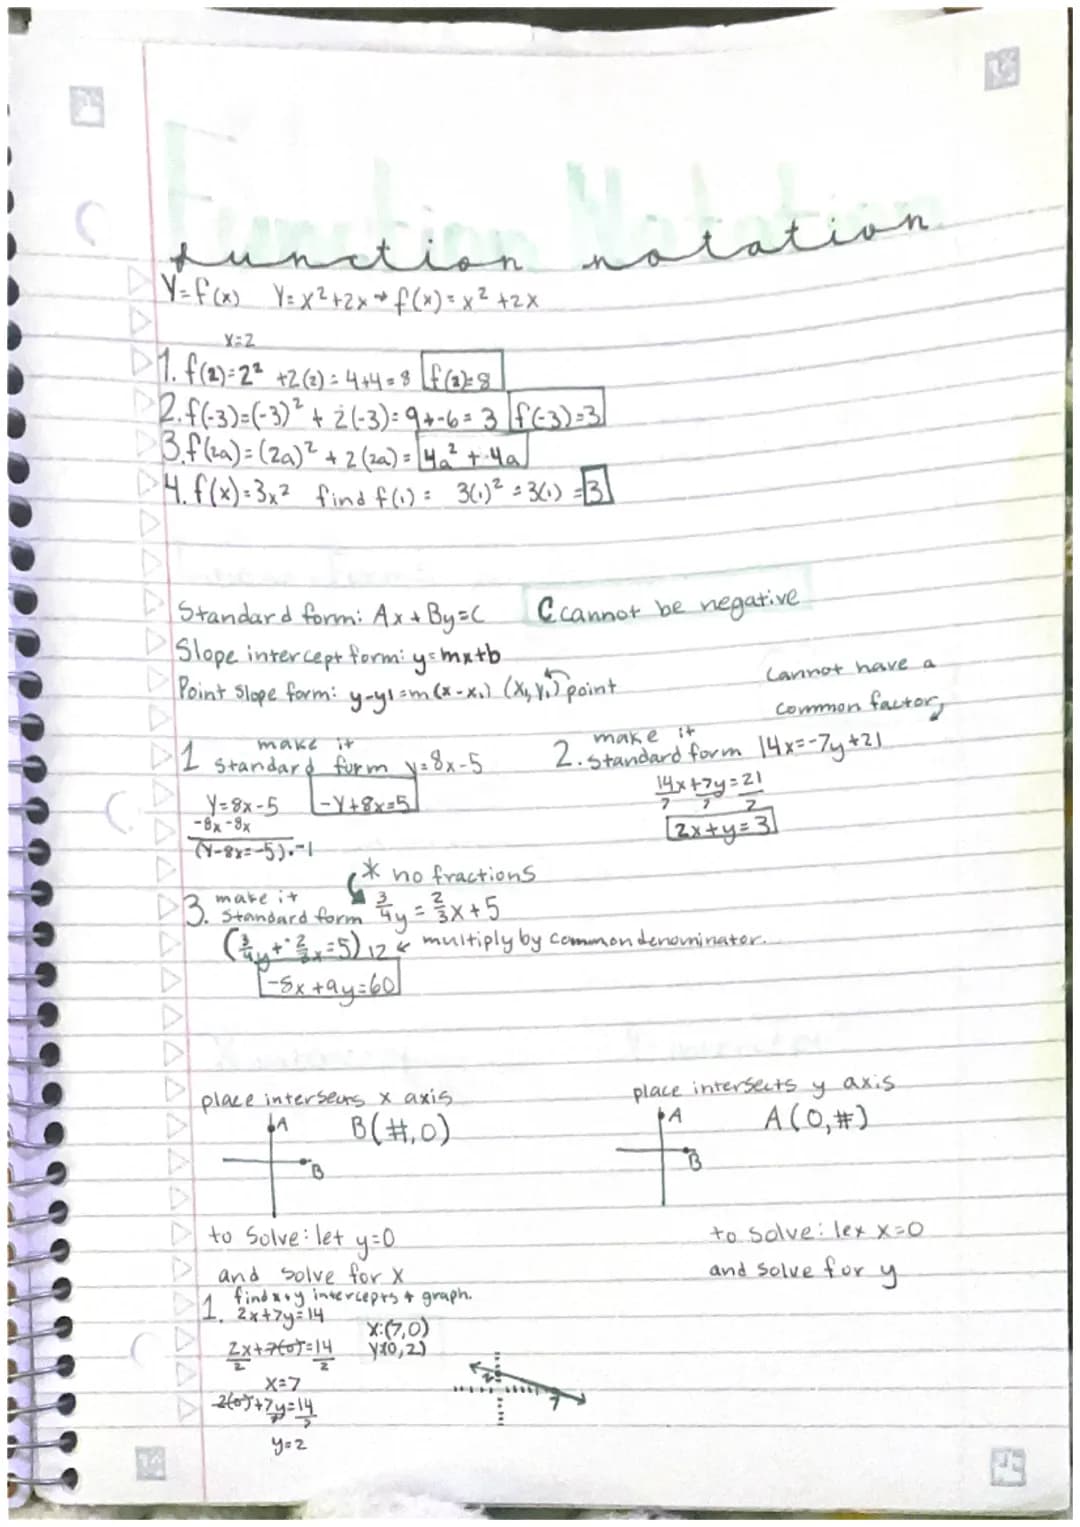 Function Notation
function notation
Y=f(x) Y=x²+2x→f(x)=x²+2x
x=2
1. f(2)=2² +2(2)=4+4=8 f(2)=8
2. f(-3)=(-3)² + 2(-3)=9+-6=3 f(-3)=3
3. f(2a)=(2a)² +2(2a)= 4a² + 4a
4. f(x)=3x² find f(1)= 3(1)² =3(1) =3
Standard form: Ax+By=C C cannot be negative
Slope intercept form: y=mx+b
Point Slope form: y-y1=m(x-x₁) (x₁,y₁) point
cannot have a
common factor
1 make it standard form y=8x-5
2. make it standard form 14x=-7y+21
Y=8x-5 -Y+8x=5
-8x -8x
(Y-8x=-5).-1
14x+7y=21
7 7 7
2x+y=3
* no fractions
3. make it standard form 3/4y=2/3x+5
(3/4y+-2/3x=5)12 ← multiply by common denominator.
-8x+9y=60
place intersects x axis
A B(#,0)
B
to solve: let y=0
and solve for x
place intersects y axis
A A(0,#)
B
to solve: lex x=0
and solve for y
1. find x+y intercepts + graph.
2x+7y=14
2x+7(0)=14
2 2
x=7
2(0)+7y=14
7 7
y=2
x:(7,0)
y:(0,2)
2
7